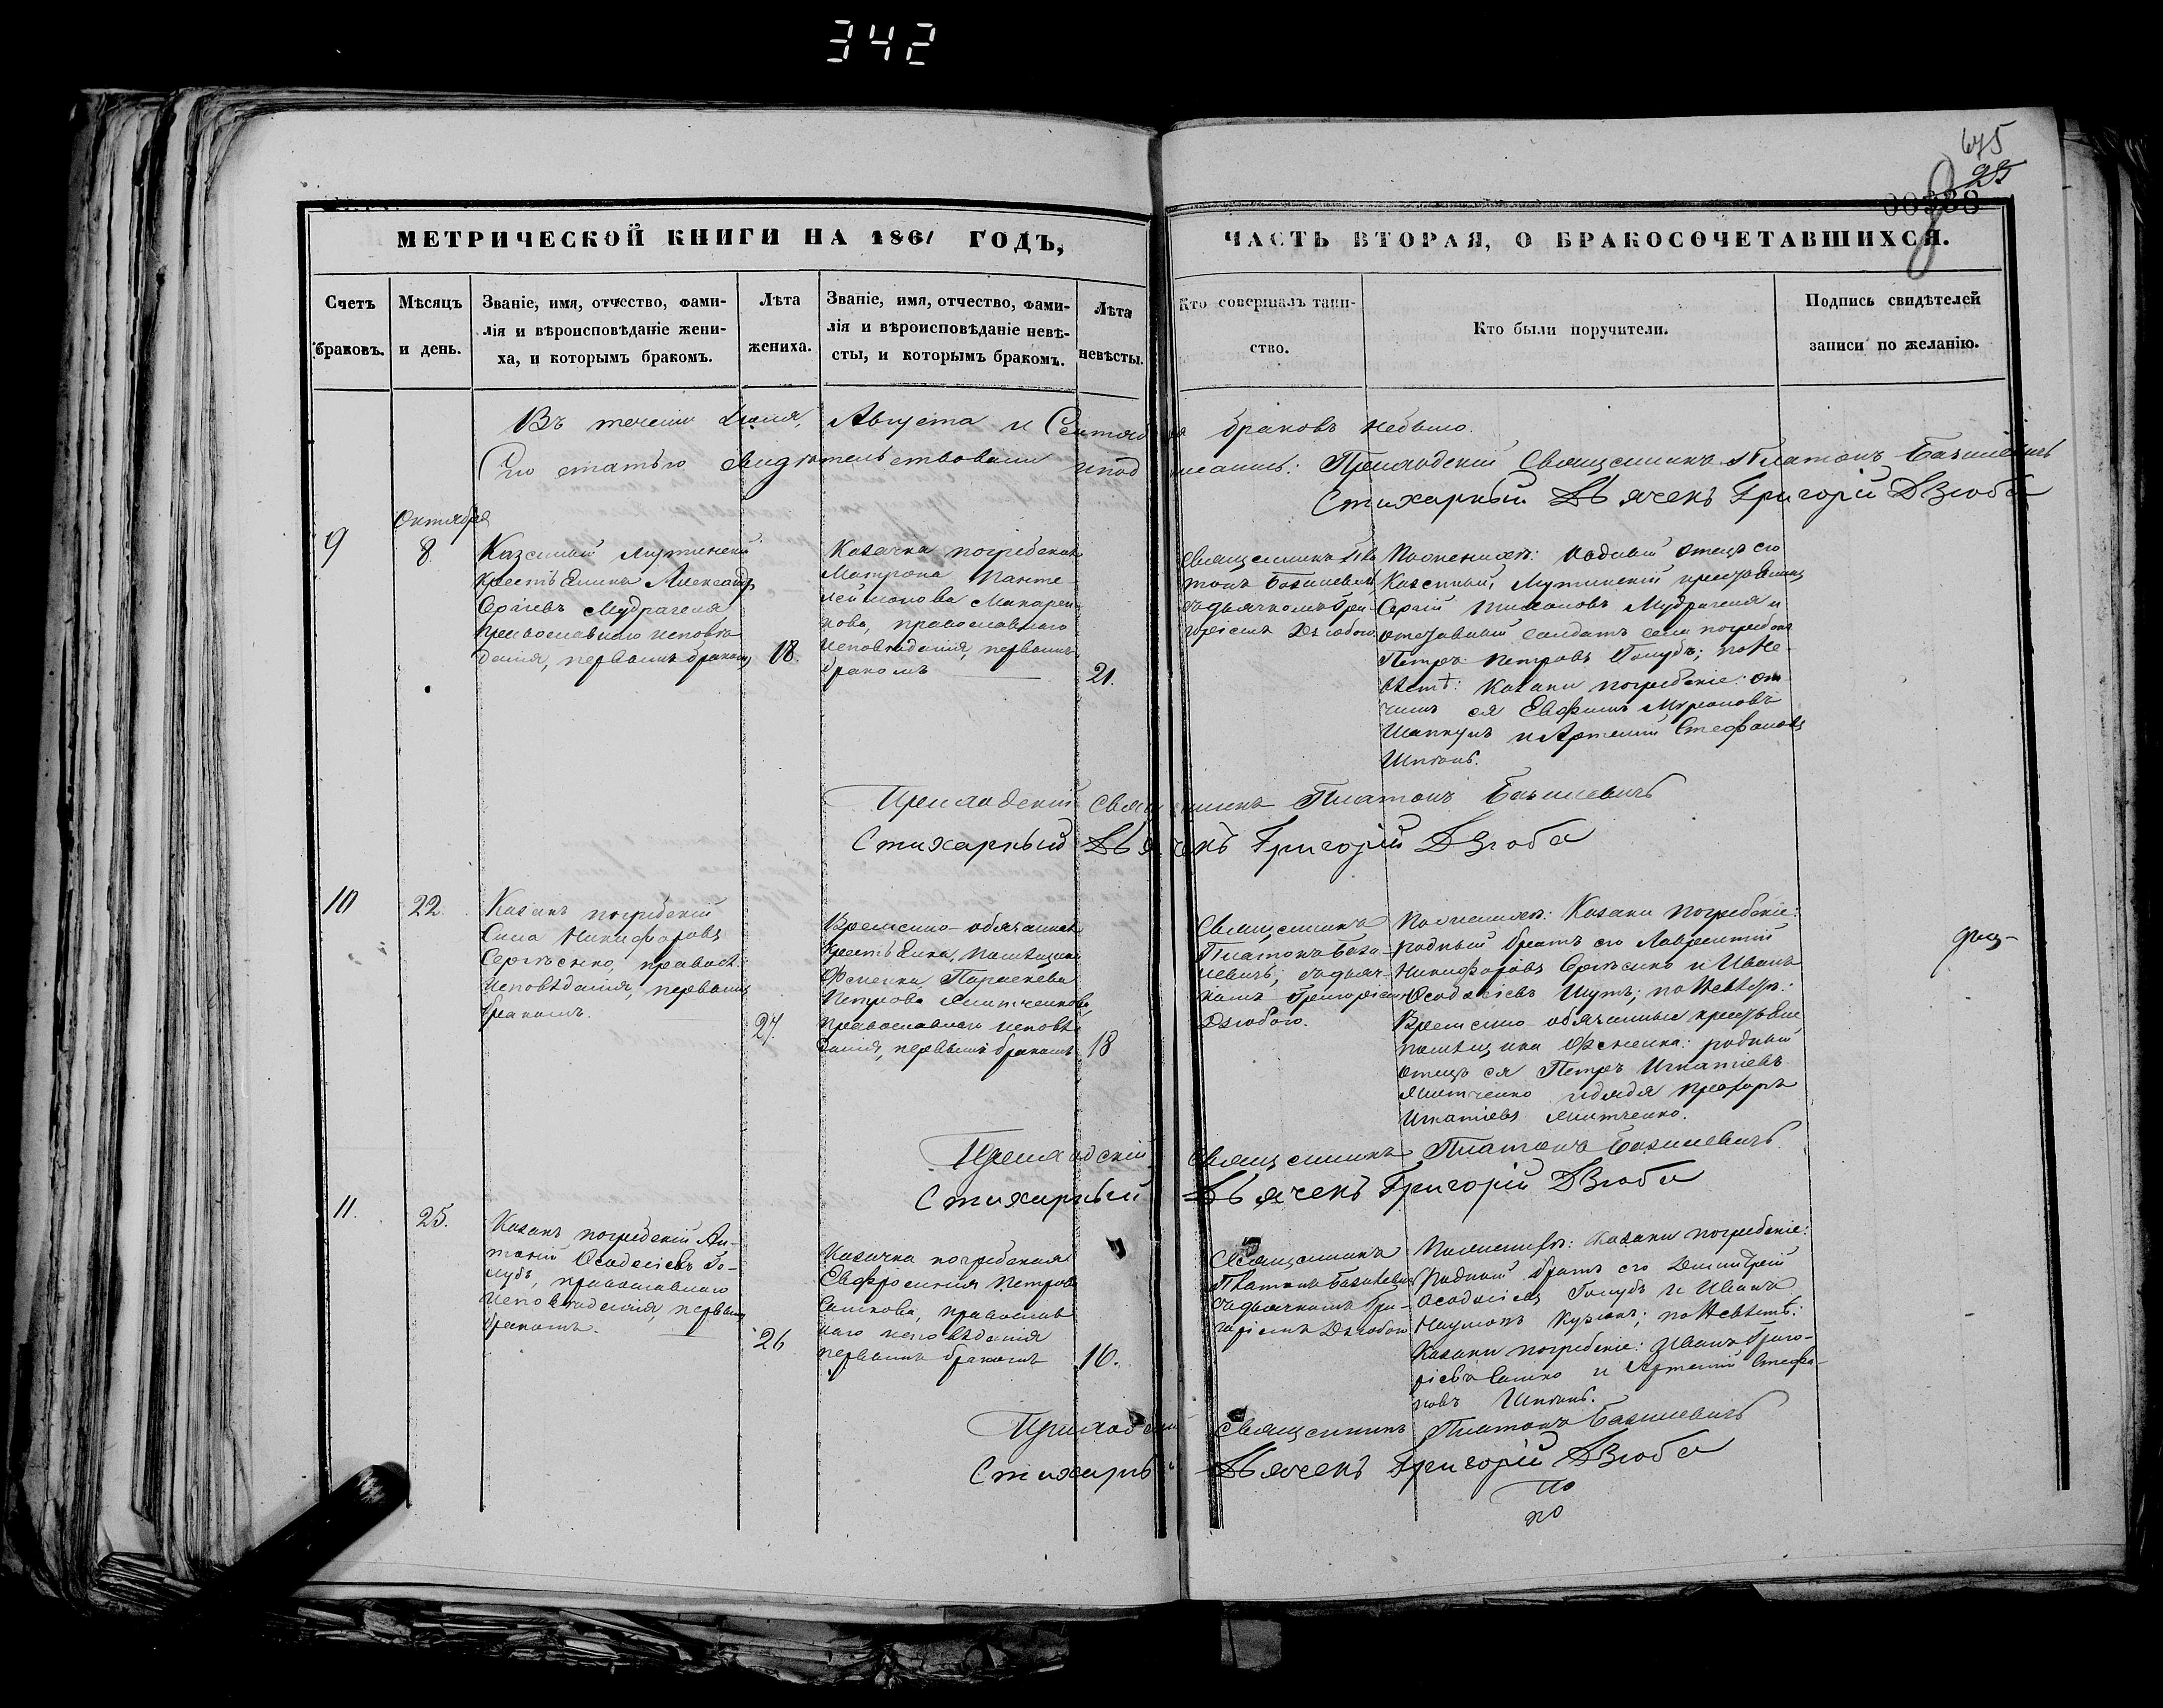 342
675
25
00338
МЕТРИЧЕСКОЙ КНИГИ НА 1861 ГОДЪ,
ЧАСТЬ ВТОРАЯ, О БРАКОСОЧЕТАВШИХСЯ.
Счетъ
браковъ.
Мѣсяцъ
и день.
Званіе, имя, отчество, фами-
лія и вѣроисповѣданіе жени-
ха, и которымъ бракомъ.
Лѣта
жениха.
Званіе, имя, отчество, фами-
лія и вѣроисповѣданіе невѣ-
сты, и которымъ бракомъ.
Лѣта
невѣсты.
Кто совершалъ таин-
ство.
Кто были поручители.
Подпись свидѣтелей
записи по желанію.
Въ теченіи Августа и Сентября браковъ небыло.
статью свидѣтельствовали Приходскій Священникъ Платонъ Базилевичъ
Стихарный Дьячекъ Григорій Дзюба
Октября
9
8.
Казенный
крестьянинъ Александръ
Сергіевъ Мудрагеля
православнаго исповѣ-
данія, первымъ бракомъ
18.
Козачка погребская
Матрона Панте-
леимонова Макарен-
кова, православнаго
исповѣданія, первымъ
бракомъ
21.
Священникъ Пла-
тонъ Базилевичъ
съ дьячкомъ Гри-
горіемъ Дзюбою
По женихѣ: родный отецъ его
Казенный крестьянинъ
Сергій Мудрагеля и
солдатъ села погребовъ
Петръ Петровъ Голубъ; по не-
вѣстѣ: Козаки погребскіе: от-
чимъ ея Евфимъ
и Артемій Стефановъ
Приходскій Священникъ Платонъ Базилевичъ
Стихарный Дьячекъ Григорій Дзюба
10
22.
Козакъ погребскій
Сила Никифоровъ
Сергѣенко, правосл:
исповѣданія, первымъ
бракомъ.
27.
Временно-обязанная
крестьянка, помѣщика
Параскева
Петрова
православнаго исповѣ-
данія, первымъ бракомъ
18
Священникъ
Платонъ Бази-
левичъ, съ дьяч-
комъ Григоріемъ
Дзюбою.
По женихѣ: Козаки погребскіе:
родный братъ его Лаврентій
Никифоровъ Сергѣенко и Иванъ
Ѳеодосіевъ Шутъ; по невѣстѣ:
Временно-обязанные крестьяне
помѣщика родный
отецъ ея Петръ Игнатіевъ
и дядя Прохоръ
Игнатіевъ
Приходскій Священникъ Платонъ Базилевичъ
Стихарный Дьячекъ Григорій Дзюба
11.
25.
Козакъ погребскій Ан-
тоній Ѳеодосіевъ Го-
лубъ, православнаго
исповѣданія, первымъ
бракомъ.
26
Козачка погребская
Евфросинія Петрова
Сашкова, православ-
наго исповѣданія
первымъ бракомъ
16.
Священникъ
Платонъ Базилевичъ
съ дьячкомъ Гри-
горіемъ Дзюбою
По женихѣ: Козаки погребскіе:
Родный братъ его Димитрій
Ѳеодосіевъ Голубъ и Иванъ
Наумовъ по невѣстѣ:
Козаки погребскіе: Иванъ Григо-
ріевъ Сашко и Артемій Стефа-
новъ
Приходскій Священникъ Платонъ Базилевичъ
Стихарный Дьячекъ Григорій Дзюба
по
по